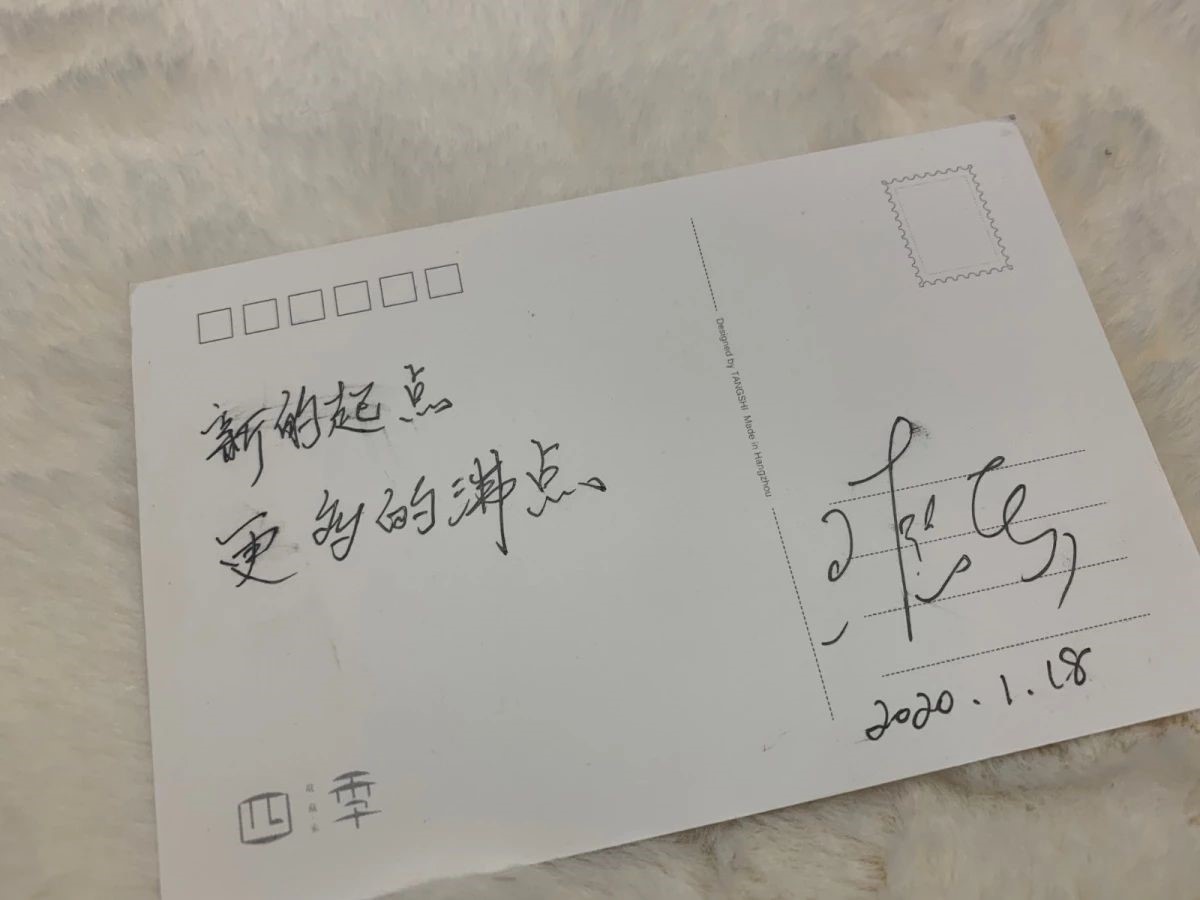 新的起点
更多的沸点
Designed by TANGSHI Made in Hangzhou
2020.1.18
四季